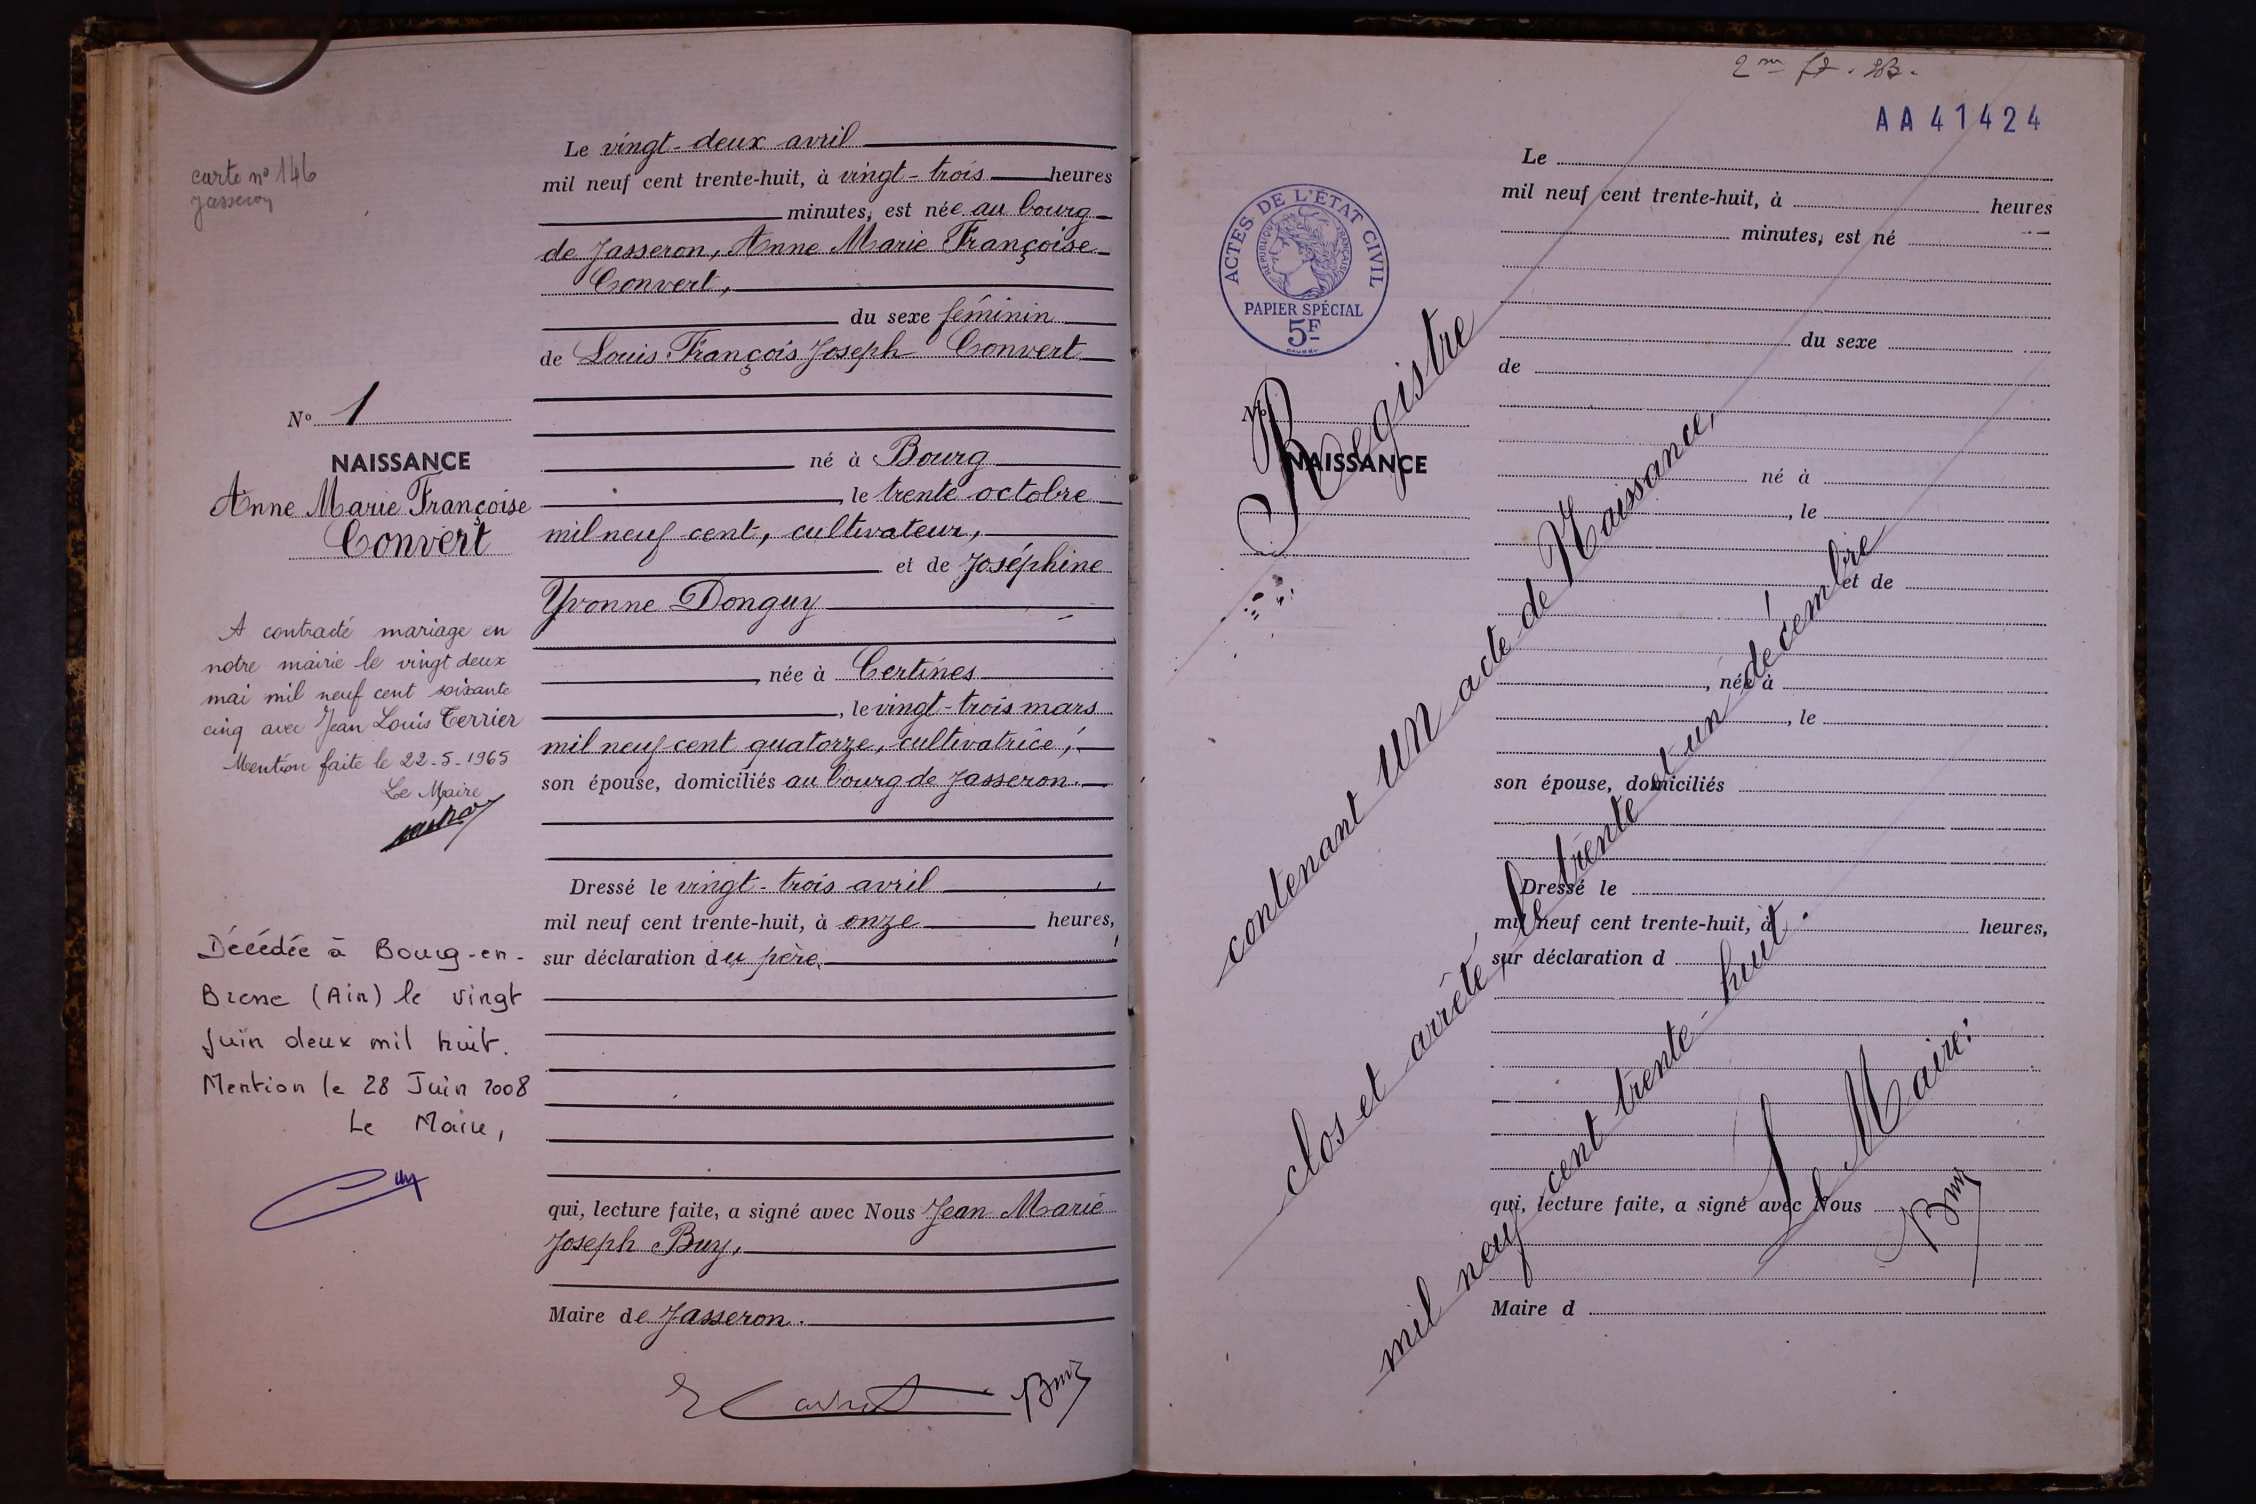 carte nº 146
Jasseron
Nº 1
NAISSANCE
Anne Marie Françoise
Convert
A contracté mariage en
notre mairie le vingt deux
mai mil neuf cent soixante
cinq avec Jean Louis Terrier
Mention faite le 22-5-1965
Le Maire
Décédée à Bourg-en-
Bresse (Ain) le vingt
Juin deux mil huit.
Mention le 28 Juin 2008
Le Maire,
Le vingt-deux avril
mil neuf cent trente-huit, à vingt-trois heures
minutes, est née au bourg
de Jasseron, Anne Marie Françoise
Convert,
du sexe féminin
de Louis François Joseph Convert
né à Bourg
, le trente octobre
mil neuf cent, cultivateur,
et de Joséphine
Yvonne Donguy
, née à Certines
, le vingt-trois mars
mil neuf cent quatorze, cultivatrice,
son épouse, domiciliés au bourg de Jasseron.
Dressé le vingt-trois avril
mil neuf cent trente-huit, à onze heures,
sur déclaration du père,
qui, lecture faite, a signé avec Nous Jean Marie
Joseph Buy,
Maire de Jasseron.
Buy
AA 41424
ACTES DE L'ÉTAT CIVIL
RÉPUBLIQUE FRANÇAISE
PAPIER SPÉCIAL
5F
Nº
NAISSANCE
Le
mil neuf cent trente-huit, à heures
minutes, est né
du sexe
de
né à
, le
et de
, née à
, le
son épouse, domiciliés
Dressé le
mil neuf cent trente-huit, à heures,
sur déclaration d
qui, lecture faite, a signé avec Nous
Maire d
Registre
contenant un acte de Naissance,
clos et arrêté, le trente et un décembre
mil neuf cent trente-huit.
Le Maire:
Buy